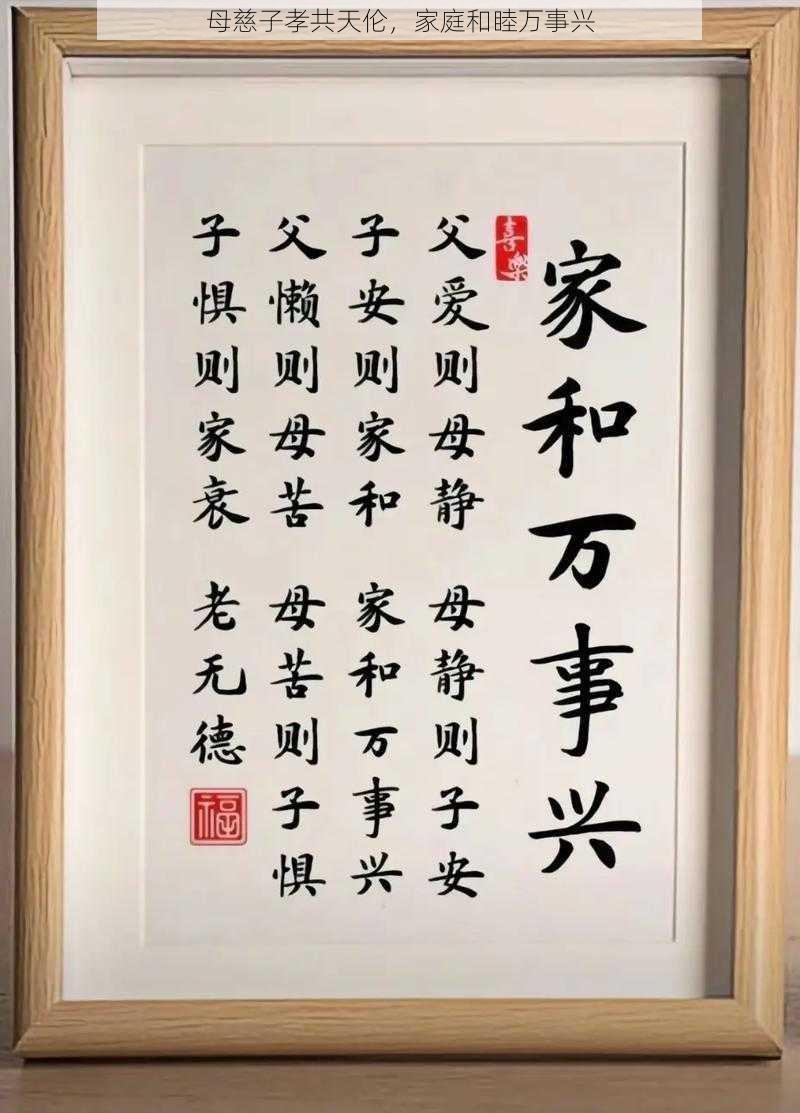 母慈子孝共天伦，家庭和睦万事兴
家和万事兴
喜樂
父爱则母静 母静则子安
子安则家和 家和万事兴
父懒则母苦 母苦则子惧
子惧则家衰 老无德
福